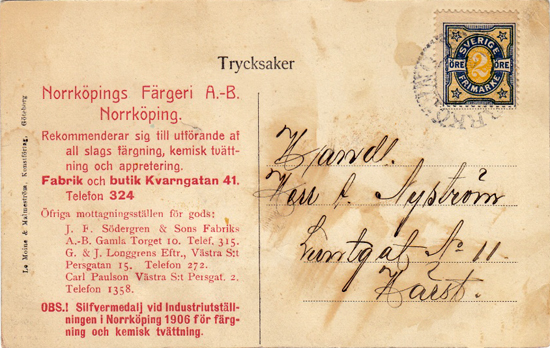 Trycksaker
SVERIGE
ÖRE 2 ÖRE
FRIMÄRKE
Norrköpings Färgeri A.-B.
Norrköping.
Rekommenderar sig till utförande af
all slags färgning, kemisk tvätt-
ning och appretering.
Fabrik och butik Kvarngatan 41.
Telefon 324
Öfriga mottagningsställen för gods:
J. F. Södergren & Sons Fabriks
A.-B. Gamla Torget 10. Telef. 315.
G. & J. Longgrens Eftr., Västra S:t
Persgatan 15. Telefon 272.
Carl Paulson Västra S:t Persgat. 2.
Telefon 1358.
OBS.! Silfvermedalj vid Industriutställ-
ningen i Norrköping 1906 för färg-
ning och kemisk tvättning.
Le Moine & Malmeström, Konstförlag, Göteborg
Handl.
Herr C. Nyström
No 11